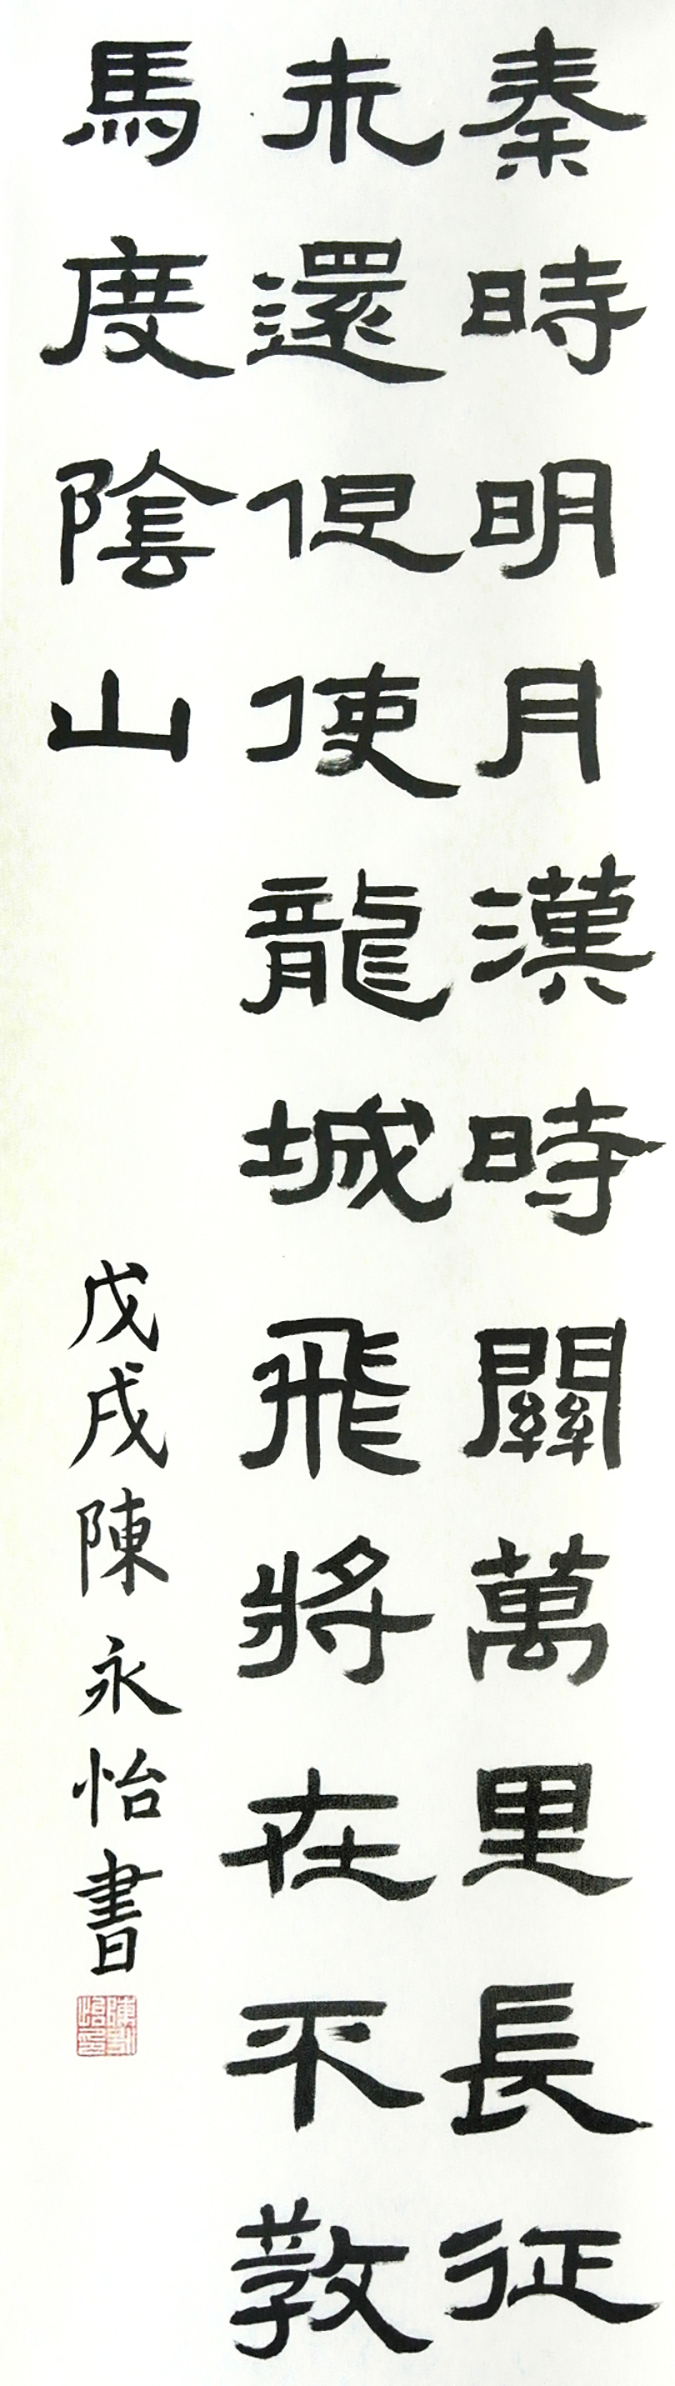 秦時明月漢時關萬里長征
未還但使龍城飛將在不敎
馬度陰山
戊戌陳永怡書
陳永怡印